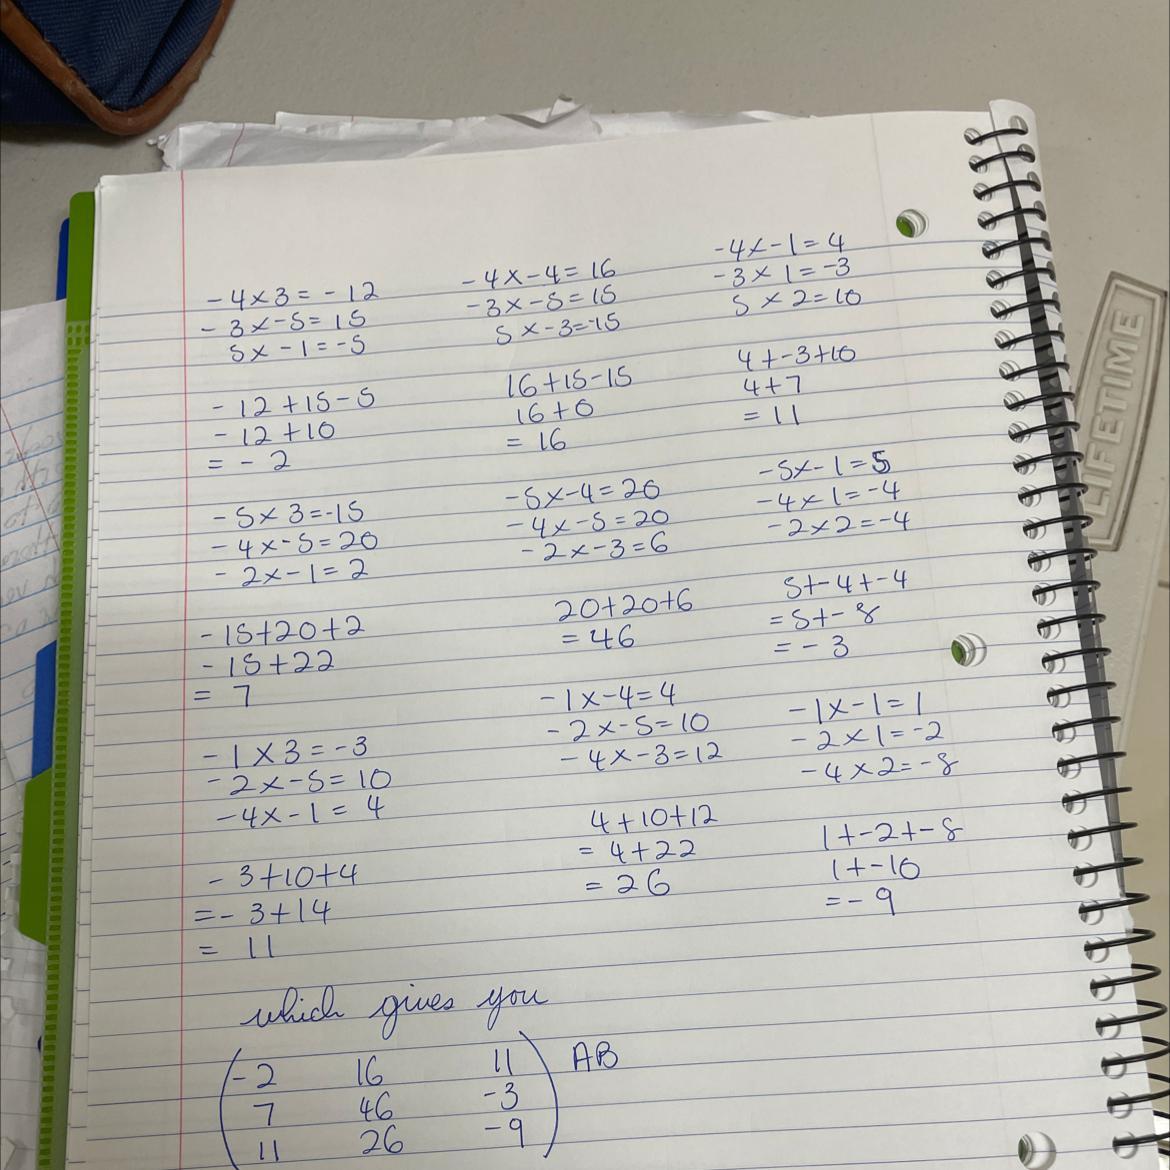 -4×3=-12
-3×-5=15
5×-1=-5
-12+15-5
-12+10
=-2
-4×-4=16
-3×-5=15
5×-3=-15
16+15-15
16+0
=16
-4×-1=4
-3×1=-3
5×2=10
4+-3+10
4+7
=11
-5×3=-15
-4×-5=20
-2×-1=2
-15+20+2
-15+22
= 7
-5×-4=20
-4×-5=20
-2×-3=6
20+20+6
=46
-5×-1=5
-4×1=-4
-2×2=-4
5+-4+-4
=5+-8
=-3
-1×3=-3
-2×-5=10
-4×-1=4
-3+10+4
=-3+14
= 11
-1×-4=4
-2×-5=10
-4×-3=12
4+10+12
=4+22
=26
-1×-1=1
-2×1=-2
-4×2=-8
1+-2+-8
1+-10
=-9
which gives you
-2 16 11 AB
7 46 -3
11 26 -9
LIFETIME